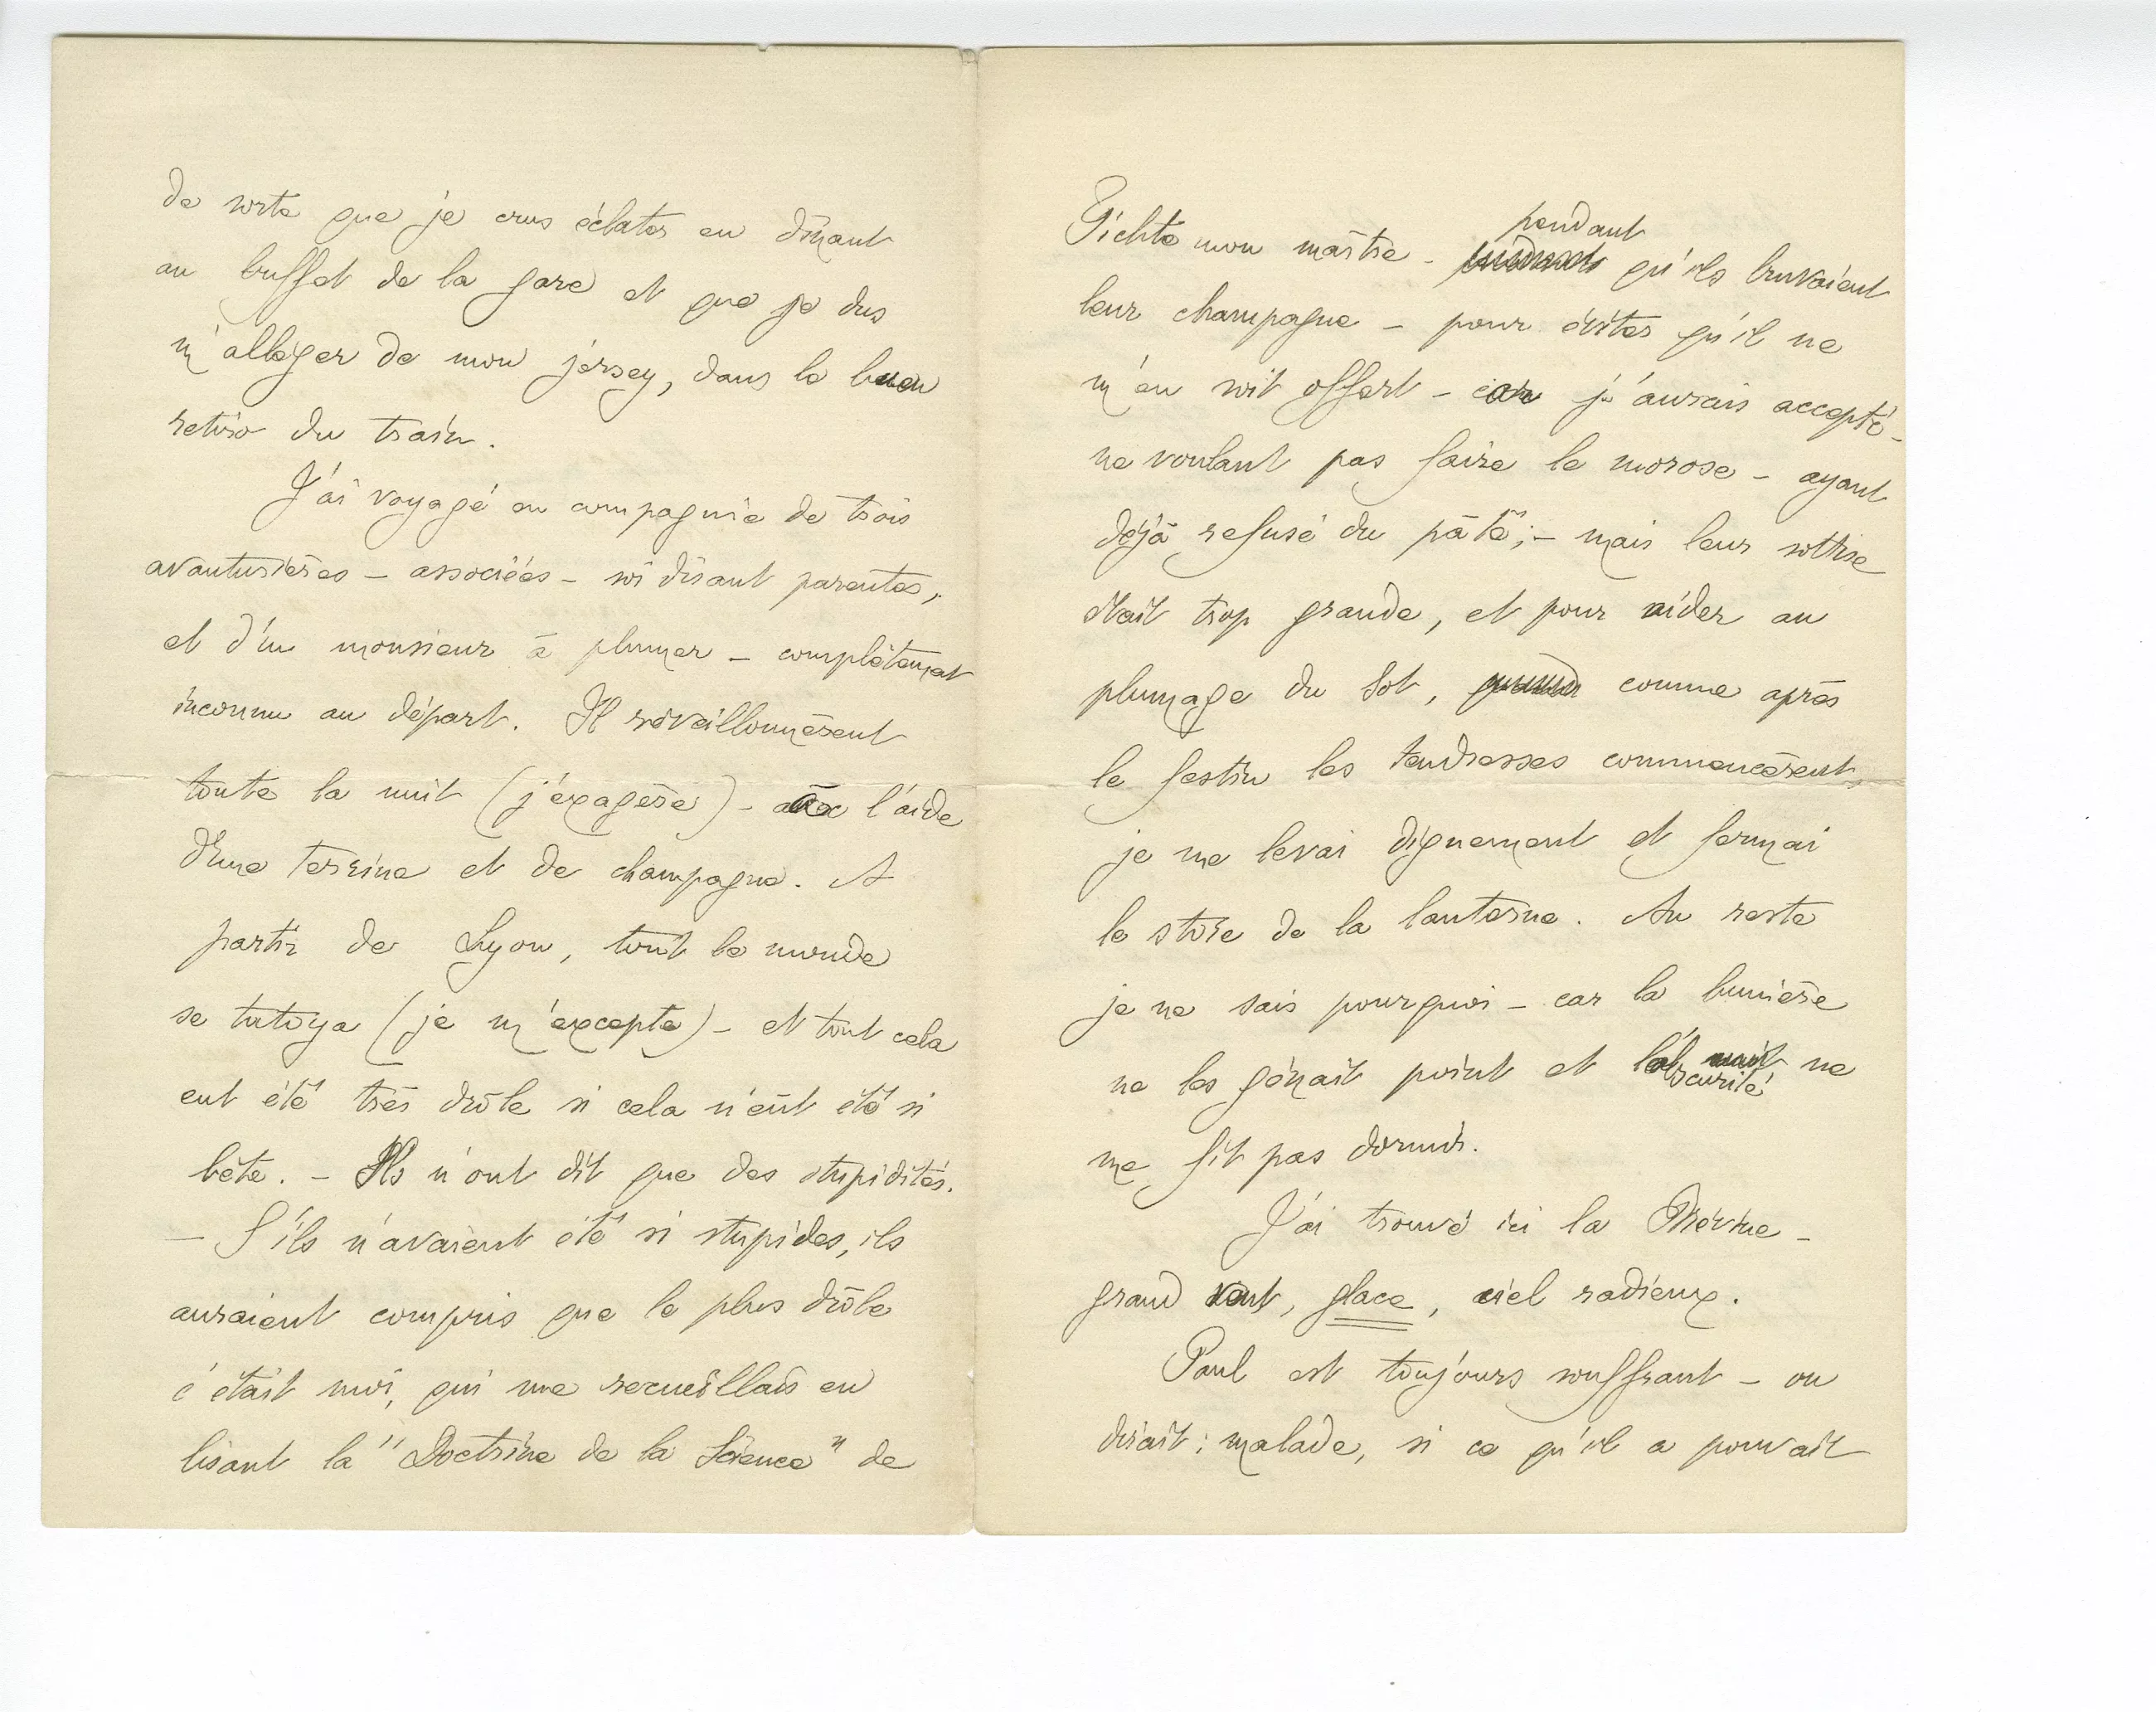 de sorte que je crus éclater en dînant
au buffet de la gare et que je dus
m'alléger de mon jersey, dans le buen
retiro du train.
J'ai voyagé en compagnie de trois
avanturières – associées – soi disant parentes,
et d'un monsieur à plumer – complètement
inconnu au départ. Il réveillonnèrent
toute la nuit (j'exagère) – avec l'aide
d'une terrine et de champagne. A
partir de Lyon, tout le monde
se tutoya (je m'excepte) – et tout cela
eut été très drôle si cela n'eût été si
bête. – Ils n'ont dit que des stupidités.
– S'ils n'avaient été si stupides, ils
auraient compris que le plus drôle
c'était moi, qui me recueillais en
lisant la "Doctrine de la Science" de
Fichte mon maître – pendant qu'ils buvaient
leur champagne – pour éviter qu'il ne
m'en soit offert – car j'aurais accepté –
ne voulant pas faire le morose – ayant
déjà refusé du pâté; – mais leur sottise
était trop grande, et pour aider au
plumage du sot, comme après
le festin les tendresses commencèrent,
je me levai dignement et fermai
le store de la lanterne. Au reste
je ne sais pourquoi – car la lumière
ne les gênait point et l'obscurité ne
me fit pas dormir.
J'ai trouvé ici la
grand vent, glace, ciel radieux.
Paul est toujours souffrant – on
dirait : malade, si ce qu'il a pouvait